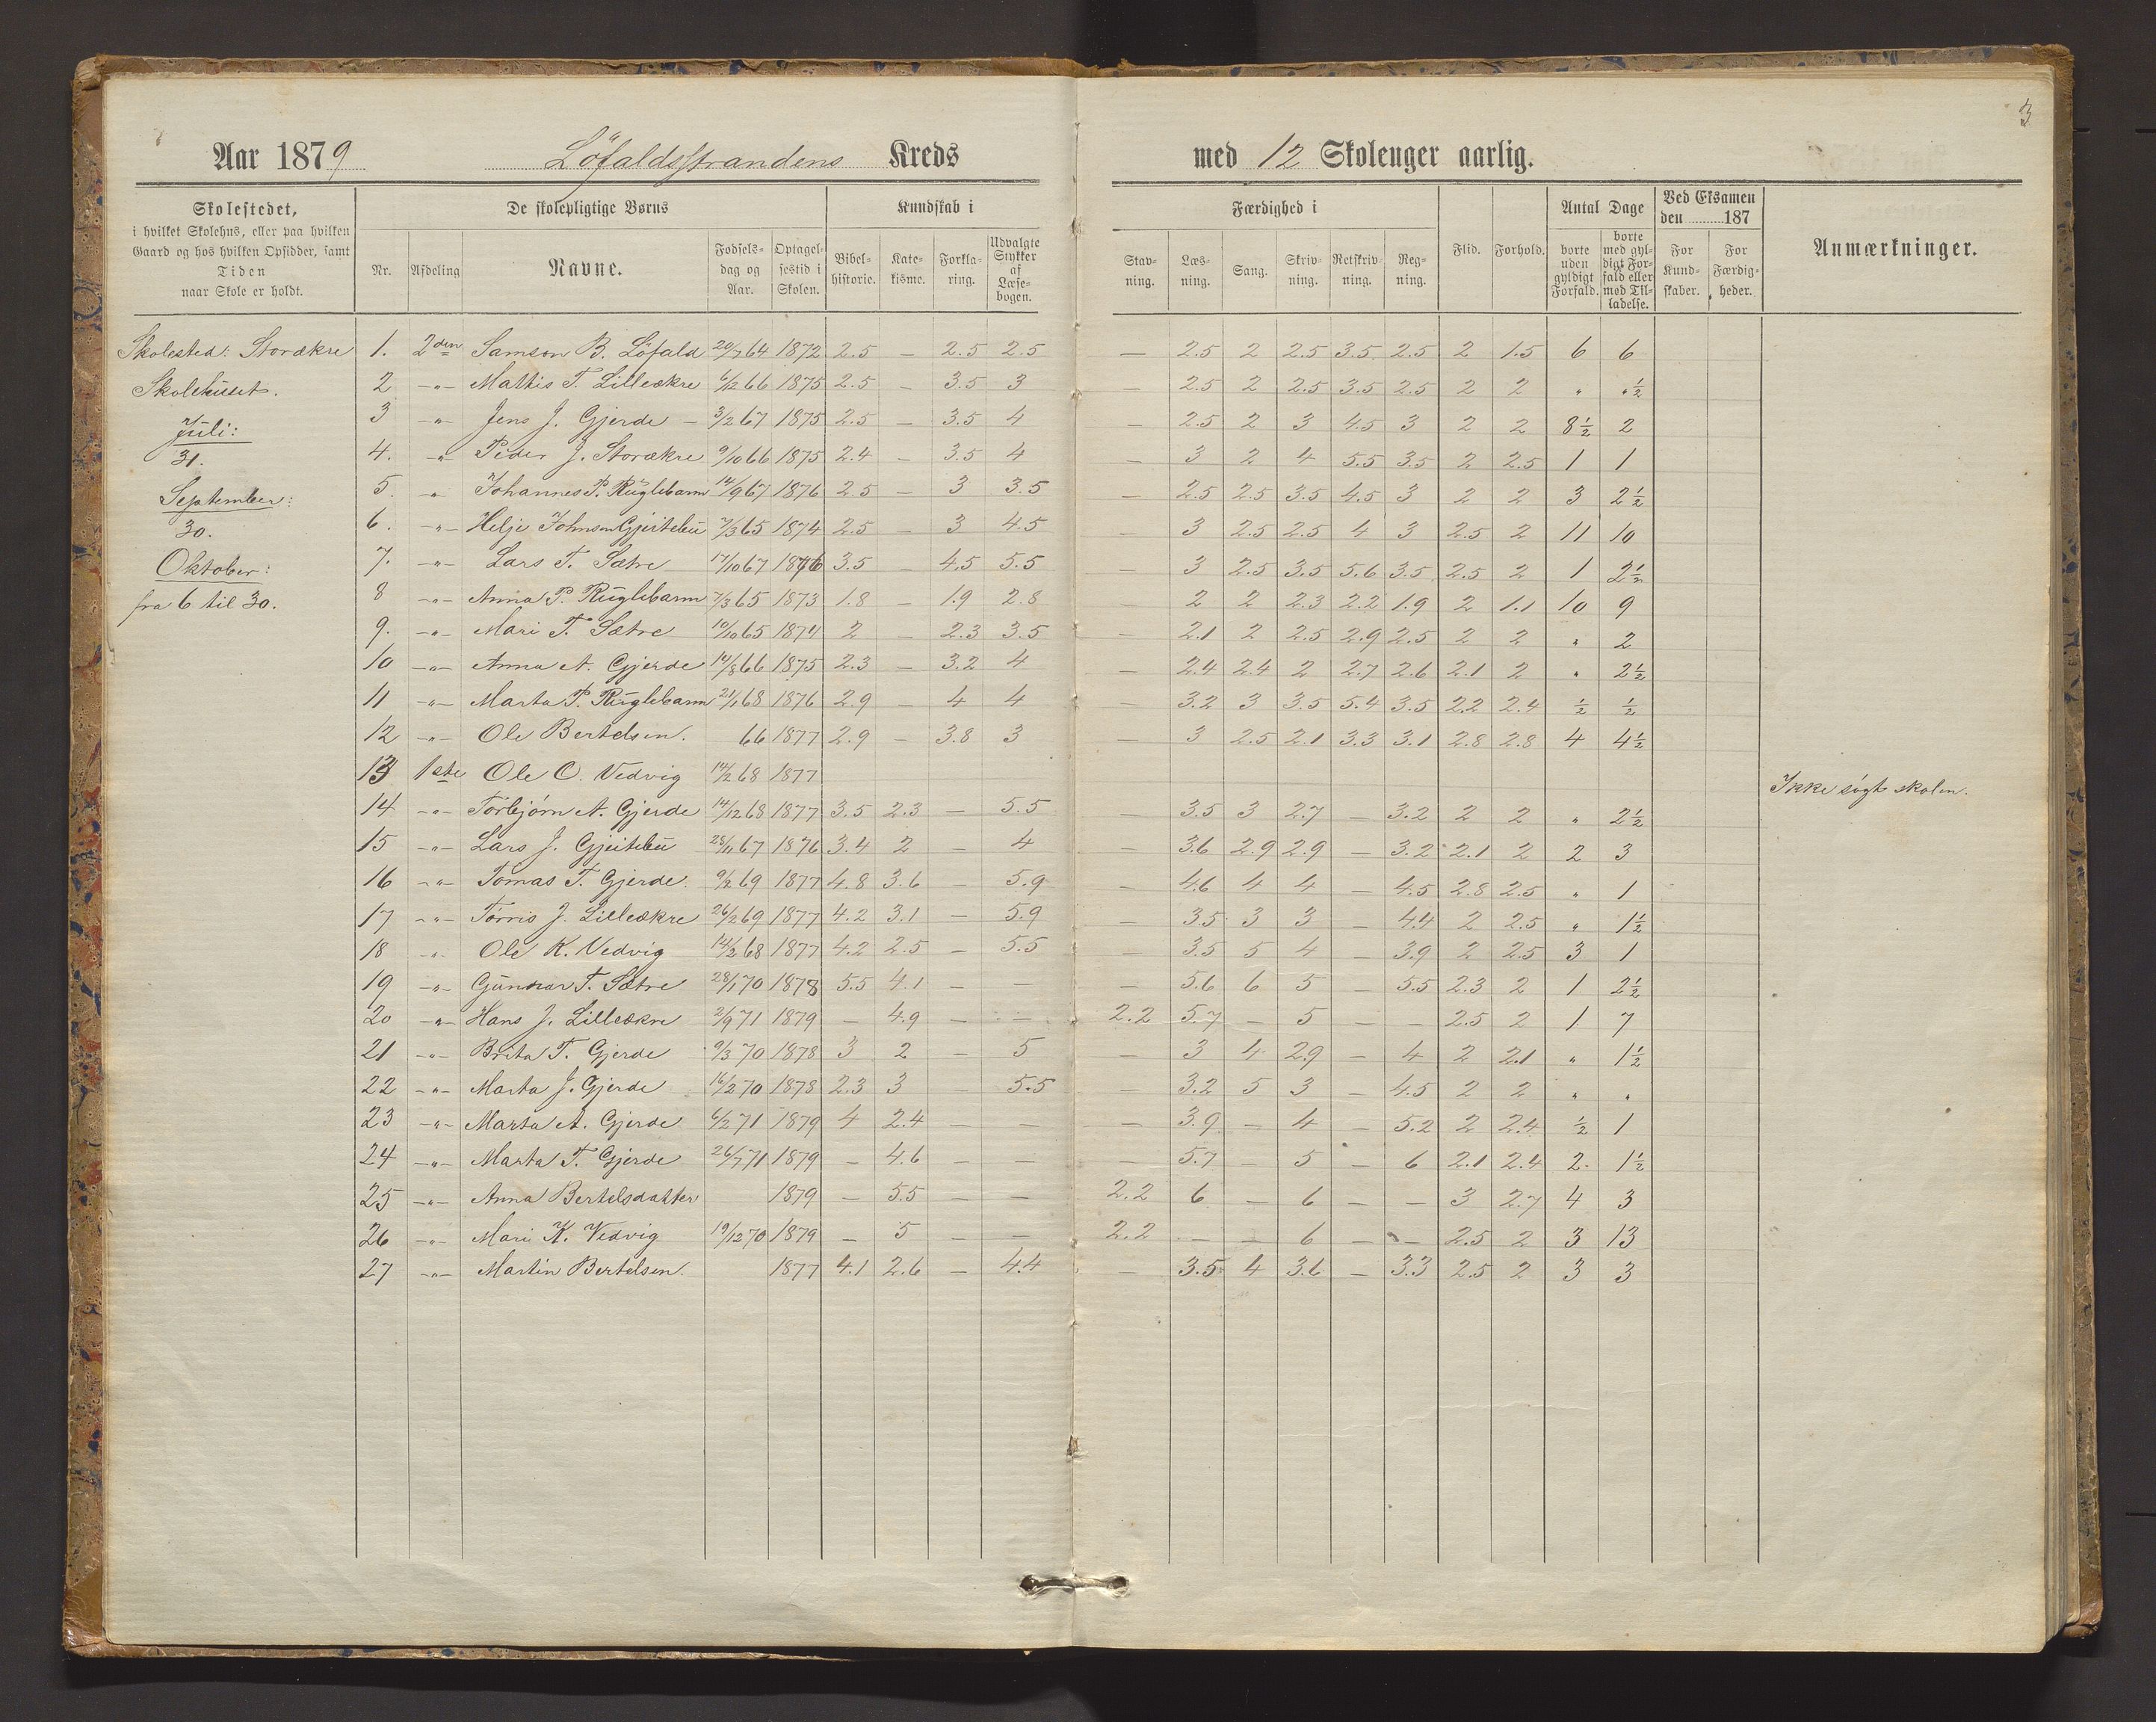 3
Aar 1879 Löfaldsstrandens Kreds med 12 Skoleuger aarlig.
Skolestedet, i hvilket Skolehus, eller paa hvilken Gaard og hos hvilken Opsidder, samt Tiden naar Skole er holdt.
De skolepligtige Børns
Nr. Afdeling Navne. Fødselsdag og Aar. Optagelsestid i Skolen.
Kundskab i
Bibelhistorie. Katekisme. Forklaring. Udvalgte Stykker af Læsebogen.
Færdighed i
Stavning. Læsning. Sang. Skrivning. Retskrivning. Regning.
Flid. Forhold.
Antal Dage
borte uden gyldigt Forfald. borte med gyldigt Forfald eller med Tilladelse.
Ved Eksamen den 187
For Kundskaber. For Færdigheder.
Anmærkninger.
Skolested: Storækre
Skolehuset.
Juli:
31.
September:
30.
Oktober:
fra 6 til 30.
1. 2den Samson B. Löfald 20/7 64 1872 2.5 — 2.5 2.5 — 2.5 2 2.5 3.5 2.5 2 1.5 6 6
2 -"- Mattis T. Lilleækre 6/12 66 1875 2.5 — 3.5 3 — 2.5 2 2.5 3.5 2.5 2 2 " "½
3 -"- Jens J. Gjerde - 3/2 67 1875 2.5 — 3.5 4 — 2.5 2 3 4.5 3 2 2 8½ 2
4. -"- Peder J. Storækre 9/10 66 1875 2.4 — 3.5 4 — 3 2 4 5.5 3.5 2 2.5 1 1
5. -"- Johannes P. Ruglebarm 14/9 67 1876 2.5 — 3 3.5 — 2.5 2.5 3.5 4.5 3 2 2 3 2½
6. -"- Helje Johnsen Gjeitebu 7/3 65 1874 2.5 — 3 4.5 — 3 2.5 2.5 4 3 2.5 2 11 10
7. -"- Lars T. Sætre 17/10 67 1876 3.5 — 4.5 5.5 — 3 2.5 3.5 5.6 3.5 2.5 2 1 2½
8 -"- Anna P. Ruglebarm 7/3 65 1873 1.8 — 1.9 2.8 — 2 2 2.3 2.2 1.9 2 1.1 10 9
9. -"- Mari T. Sætre 10/10 65 1874 2 — 2.3 3.5 — 2.1 2 2.5 2.9 2.5 2 2 " 2
10 -"- Anna A. Gjerde 14/8 66 1875 2.3 — 3.2 4 — 2.4 2.4 2 2.7 2.6 2.1 2 " 2½
11 -"- Marta P. Ruglebarm 21/1 68 1876 2.9 — 4 4 — 3.2 3 3.5 5.4 3.5 2.2 2.4 ½ ½
12 -"- Ole Bertelsen. 66 1877 2.9 — 3.8 3 — 3 2.5 2.1 3.3 3.1 2.8 2.8 4 4½
13 1ste Ole O. Vedvig 14/2 68 1877 Ikke søgt skolen.
14 -"- Torbjørn A. Gjerde 14/12 68 1877 3.5 2.3 — 5.5 — 3.5 3 2.7 — 3.2 2 2 " 2½
15 -"- Lars J. Gjeitebu 28/11 67 1876 3.4 2 — 4 — 3.6 2.9 2.9 — 3.2 2.1 2 2 3
16 -"- Tomas T. Gjerde. 9/2 69 1877 4.8 3.6 — 5.9 — 4.6 4 4 — 4.5 2.8 2.5 " 1
17 -"- Tørris J. Lilleækre 26/2 69 1877 4.2 3.1 — 5.9 — 3.5 3 3 — 4.4 2 2.5 " 1½
18 -"- Ole K. Vedvig 14/2 68 1877 4.2 2.5 — 5.5 — 3.5 5 4 — 3.9 2 2.5 3 1
19 -"- Gunnar T. Sætre 28/1 70 1878 5.5 4.1 — — — 5.6 6 5 — 5.5 2.3 2 1 2½
20 -"- Hans J. Lilleækre 2/9 71 1879 — 4.9 — — 2.2 5.7 — 5 — — 2.5 2 1 7
21 -"- Brita T. Gjerde 9/3 70 1878 3 2 — 5 — 3 4 2.9 — 4 2 2.1 " 1½
22 -"- Marta J. Gjerde 16/2 70 1878 2.3 3 — 5.5 — 3.2 5 3 — 4.5 2 2 " "
23 -"- Marta A. Gjerde 6/2 71 1879 4 2.4 — — — 3.9 — 4 — 5.2 2 2.4 ½ 1
24 -"- Marta T. Gjerde 26/7 71 1879 — 4.6 — — — 5.7 — 5 — 6 2.1 2.4 2. 1½
25 -"- Anna Bertelsdatter 1879 — 5.5 — — 2.2 6 — 6 — — 3 2.7 4 3
26 -"- Mari K. Vedvig 19/12 70 1879 — 5 — — 2.2 — — 6 — — 2.5 2 3 13
27 -"- Martin Bertelsen. 1877 4.1 2.6 — 4.4 — 3.5 4 3.6 — 3.3 2.5 2 3 3